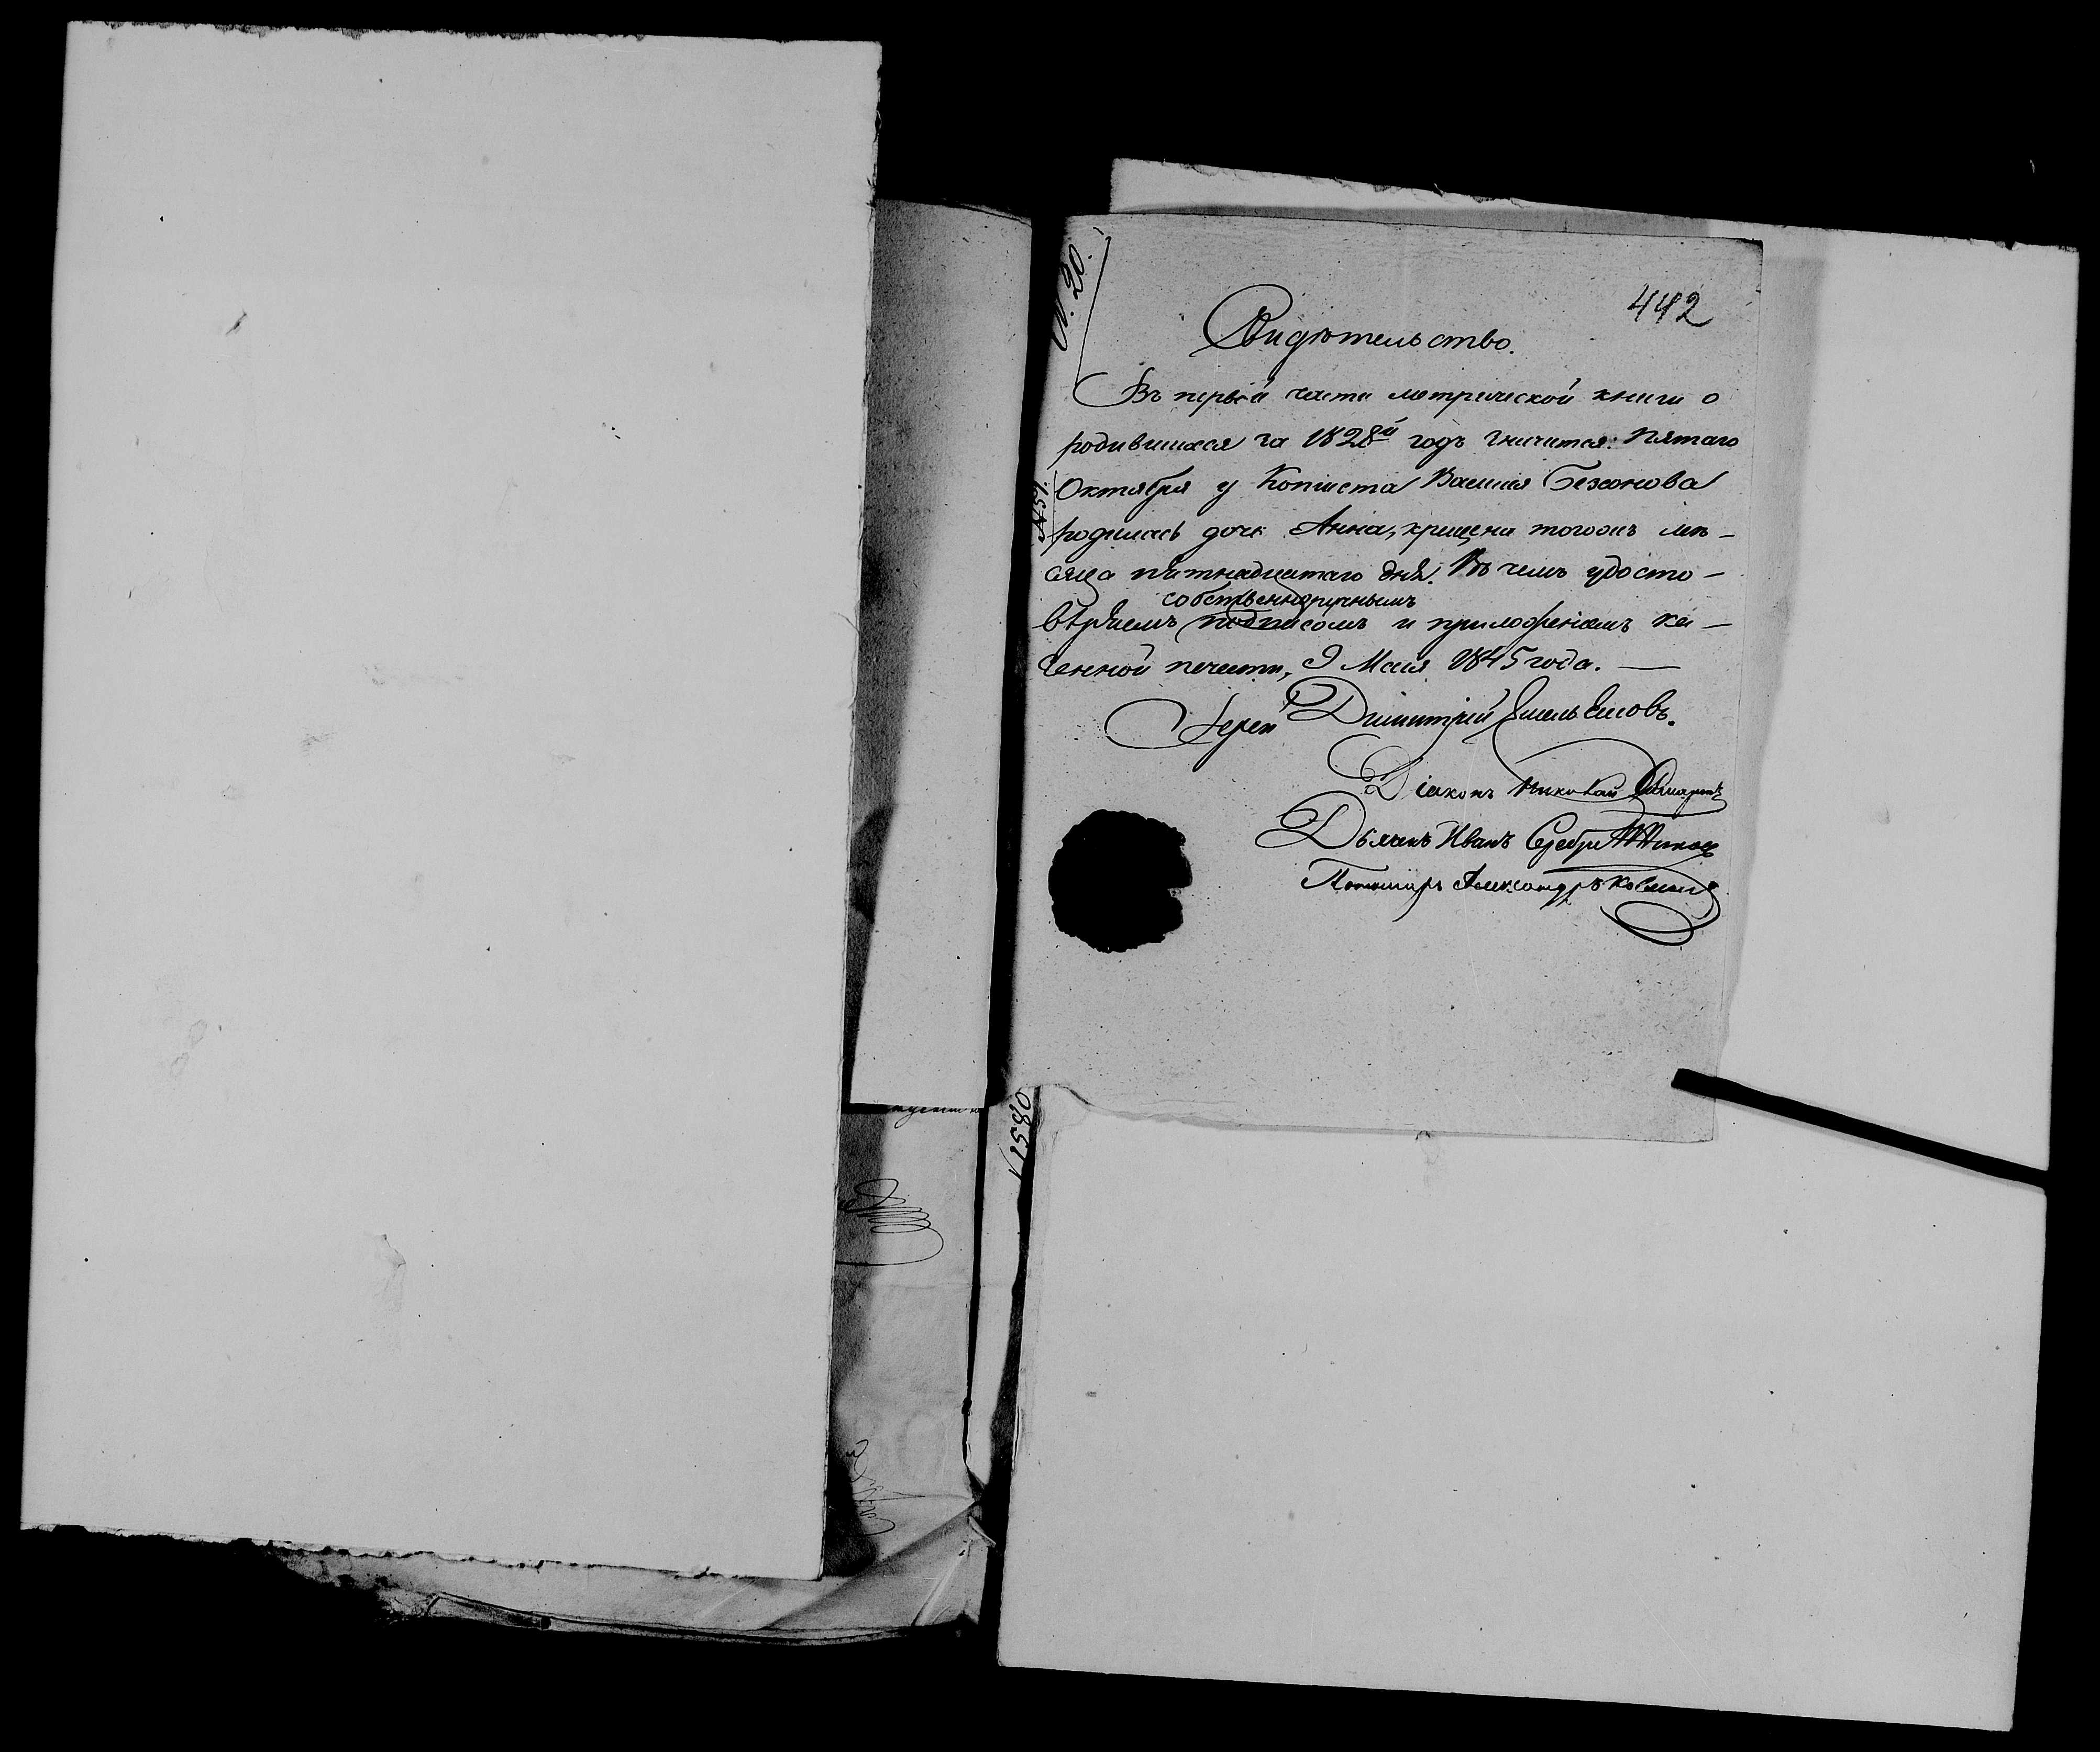 N. 20.
442
Свидѣтельство.
Въ первой части метрической книги о
родившихся за 1828й годъ значится: пятаго
Октября у Кописта Василія Безсонова
родилась дочь Анна, крещена тогожъ мѣ-
сяца пятнадцатаго дня. Въ чемъ удосто-
собственноручнымъ
вѣряемъ подписомъ и приложеніемъ ка-
зенной печати, 9 Маія 1845 года.
Іерей Димитрій Емельяновъ.
Діаконъ Николай
Дьячекъ Иванъ Серебрянниковъ
Пономарь Александръ
1580